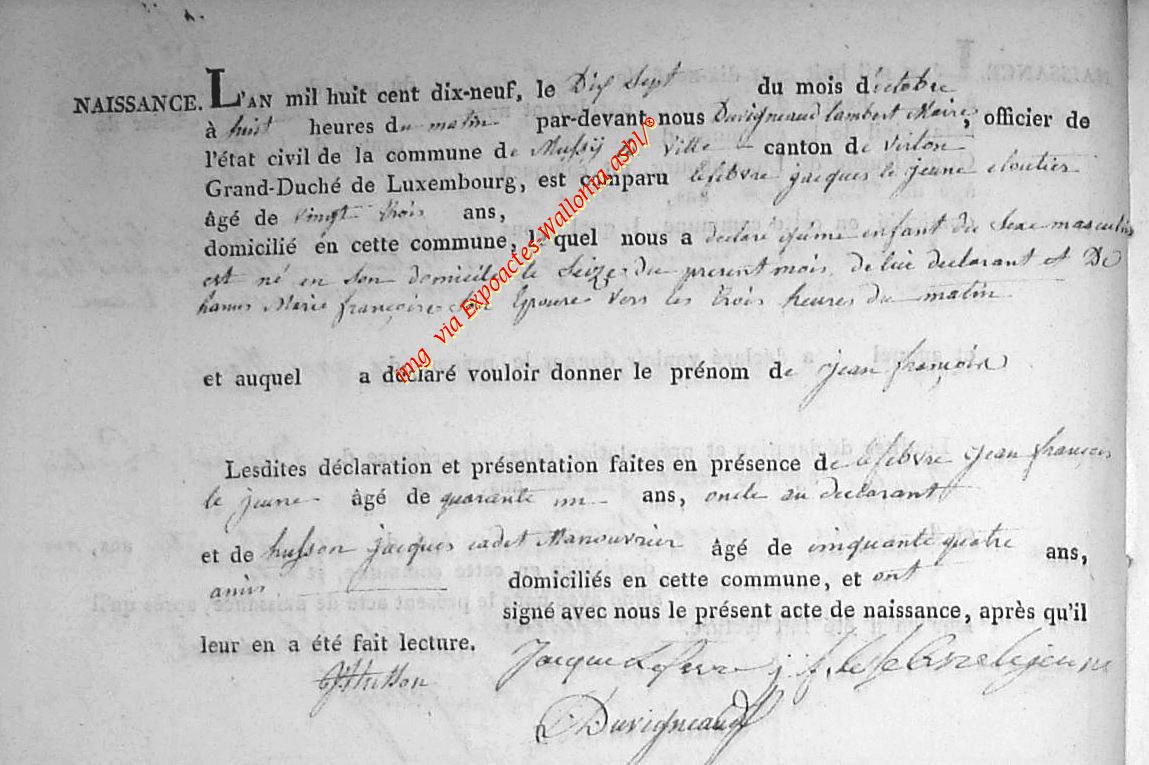 NAISSANCE. L'AN mil huit cent dix-neuf, le Dix Sept du mois d'octobre
à huit heures du matin par-devant nous Duvigneaud lambert Maire, officier de
l'état civil de la commune de Mussy la Ville canton de Virton
Grand-Duché de Luxembourg, est comparu lefebvre jacques le jeune cloutier
âgé de vingt trois ans,
domicilié en cette commune, lequel nous a declaré qu'une enfant du Sexe masculin
est né en Son domicile le Seize du present mois de lui declarant et De
hanus Marie françoise Son Epouse vers les trois heures du matin
et auquel a déclaré vouloir donner le prénom de jean françois
Lesdites déclaration et présentation faites en présence de lefebvre jean françois
le jeune âgé de quarante un ans, oncle au declarant
et de husson jacques cadet Manouvrier âgé de cinquante quatre ans,
amis domiciliés en cette commune, et ont
signé avec nous le présent acte de naissance, après qu'il
leur en a été fait lecture.
Jacque Lefevre j. f. le febvre lejeune
JHusson
Duvigneaud
img via Expoactes-Wallonia.asbl/®